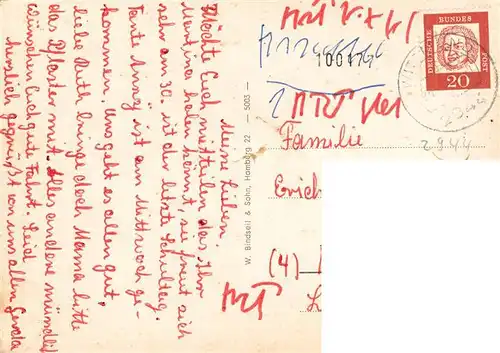 Meine Lieben.
Möchte Euch mitteilen das Ihr
Martina holen könnt, sie freut sich
sehr am 30. ist der letzte Schultag.
Tante Änny ist am Mittwoch ge-
kommen. Uns geht es allen gut,
liebe Ruth bringe doch Mama bitte
das Pflaster mit. Alles andere mündlich
wünschen Euch gute Fahrt. Seid
herzlich gegrüßt von uns allen Gerda
W. Bindseil & Sohn, Hamburg 22 — 5003 —
DEUTSCHE BUNDESPOST
20
10017
2944
Familie
Erich
(4)